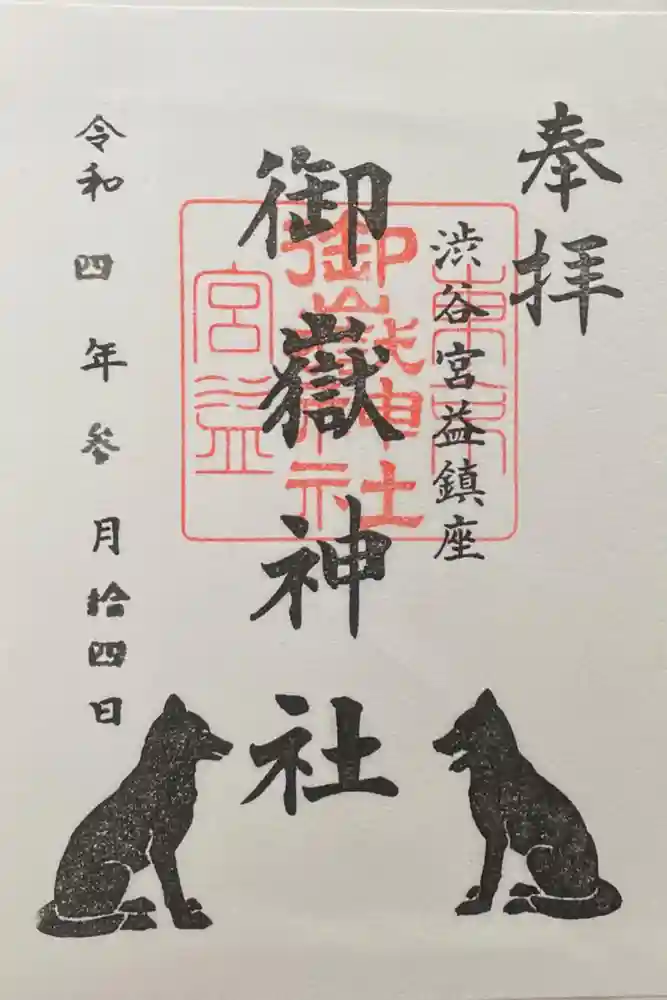 奉拝
渋谷宮益鎮座
御嶽神社
令和四年参月拾四日
東京
御嶽神社
宮益